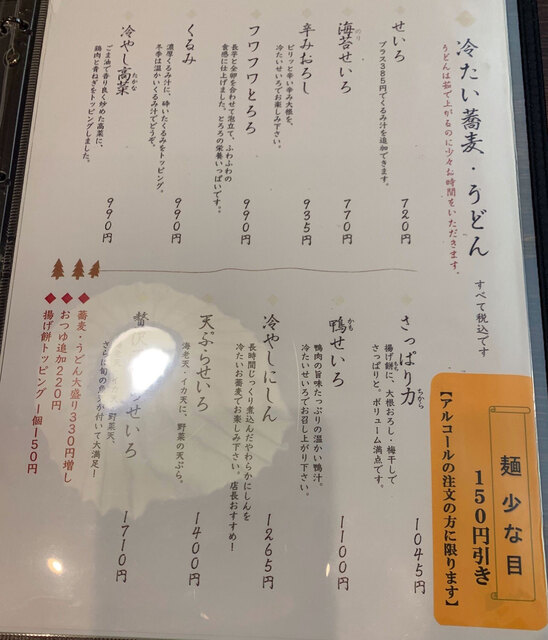 冷たい蕎麦・うどん
うどんは茹で上がるのに少々お時間をいただきます。
すべて税込です
せいろ
プラス385円でくるみ汁を追加できます。
720円
海苔せいろ
のり
770円
辛みおろし
ピリッと辛い辛み大根を、
冷たいせいろでお楽しみ下さい。
935円
フワフワとろろ
長芋と全卵を合わせて泡立て、ふわふわの
食感に仕上げました。とろろの栄養いっぱいです。
990円
くるみ
濃厚くるみ汁に、砕いたくるみをトッピング。
冬季は温かいくるみ汁でどうぞ。
990円
冷やし高菜
たかな
ごま油で香り良く炒めた高菜に、
鶏肉と青ねぎをトッピングしました。
990円
さっぱり力
ちから
揚げ餅に、大根おろし・梅干しで
さっぱりと。ボリューム満点です。
1045円
鴨せいろ
かも
鴨肉の旨味たっぷりの温かい鴨汁。
冷たいせいろでお召し上がり下さい。
1100円
冷やしにしん
長時間じっくり煮込んだやわらかにしんを
冷たいお蕎麦でお楽しみ下さい。店長おすすめ!
1265円
天ぷらせいろ
海老天・イカ天に、野菜の天ぷら。
1400円
贅沢
らせいろ
野菜天、
さらに旬の
が付いて大満足!
1710円
◆蕎麦・うどん大盛り330円増し
◆おつゆ追加220円
◆揚げ餅トッピング 1個150円
麺 少な目
150円引き
【アルコールの注文の方に限ります】